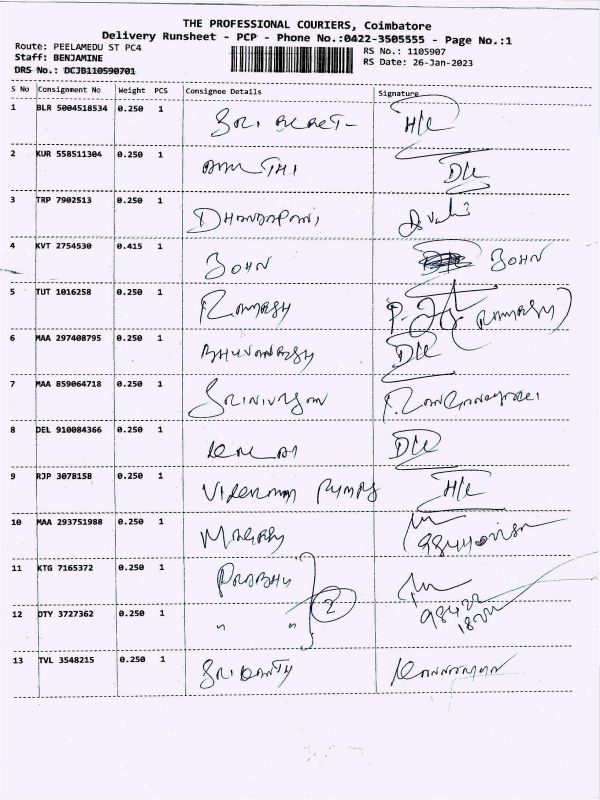 THE PROFESSIONAL COURIERS, Coimbatore
Delivery Runsheet - PCP - Phone No.:0422-3505555 - Page No.:1
Route: PEELAMEDU ST PC4
RS No.: 1105907
Staff: BENJAMINE
RS Date: 26-Jan-2023
DRS No.: DCJB110590701
S No Consignment No Weight PCS Consignee Details Signature
1 BLR 5004518534 0.250 1 H/C
2 KUR 558511304 0.250 1 D/C
3 TRP 7902513 0.250 1 DHANDAPANI
4 KVT 2754530 0.415 1 JOHN JOHN
5 TUT 1016258 0.250 1 RAMESH (RAMESH)
6 MAA 297408795 0.250 1 D/C
7 MAA 859064718 0.250 1 SRINIVASAN
8 DEL 910084366 0.250 1 D/C
9 RJP 3078158 0.250 1 PUMPS H/C
10 MAA 293751988 0.250 1
11 KTG 7165372 0.250 1 PRABHU
2
12 OTY 3727362 0.250 1 " "
13 TVL 3548215 0.250 1